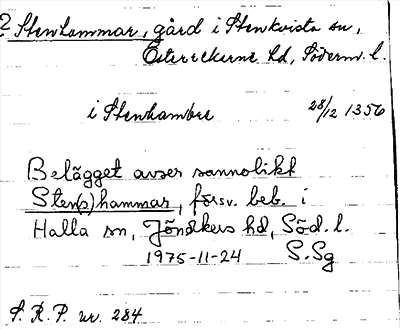 ? Stenhammar, gård i Stenkvista sn,
Österrekarne hd, Söderm. l.
i Stenhambre 28/12 1356
Belägget avser sannolikt
Sten(s)hammar, försv. beb. i
Halla sn, Jönåkers hd, Söd. l.
1975-11-24 S. Sg
S. R. P. nr. 284